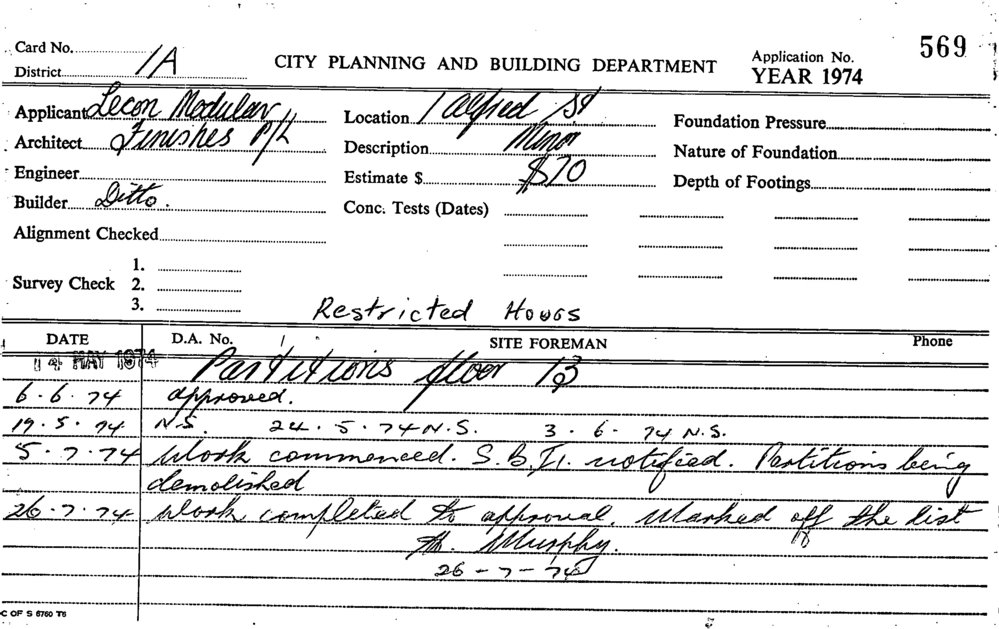 Card No. 1A
District
CITY PLANNING AND BUILDING DEPARTMENT
Application No. 569
YEAR 1974
Applicant Lecon Modular
Location 1 Alfred St
Foundation Pressure
Architect Finishes P/L
Description Minor
Nature of Foundation
Engineer
Estimate $ $70
Depth of Footings
Builder Ditto.
Conc. Tests (Dates)
Alignment Checked
Survey Check 1.
2.
3.
Restricted Hours
DATE D.A. No. SITE FOREMAN Phone
14 MAY 1974 Partitions floor 13
6.6.74 approved.
19.5.74 N.S. 24.5.74 N.S. 3.6.74 N.S.
5.7.74 Work commenced. notified. Partitions being
demolished
26.7.74 Work completed to approval. Marked off the list
Murphy.
26-7-74
C OF S 6760 T6